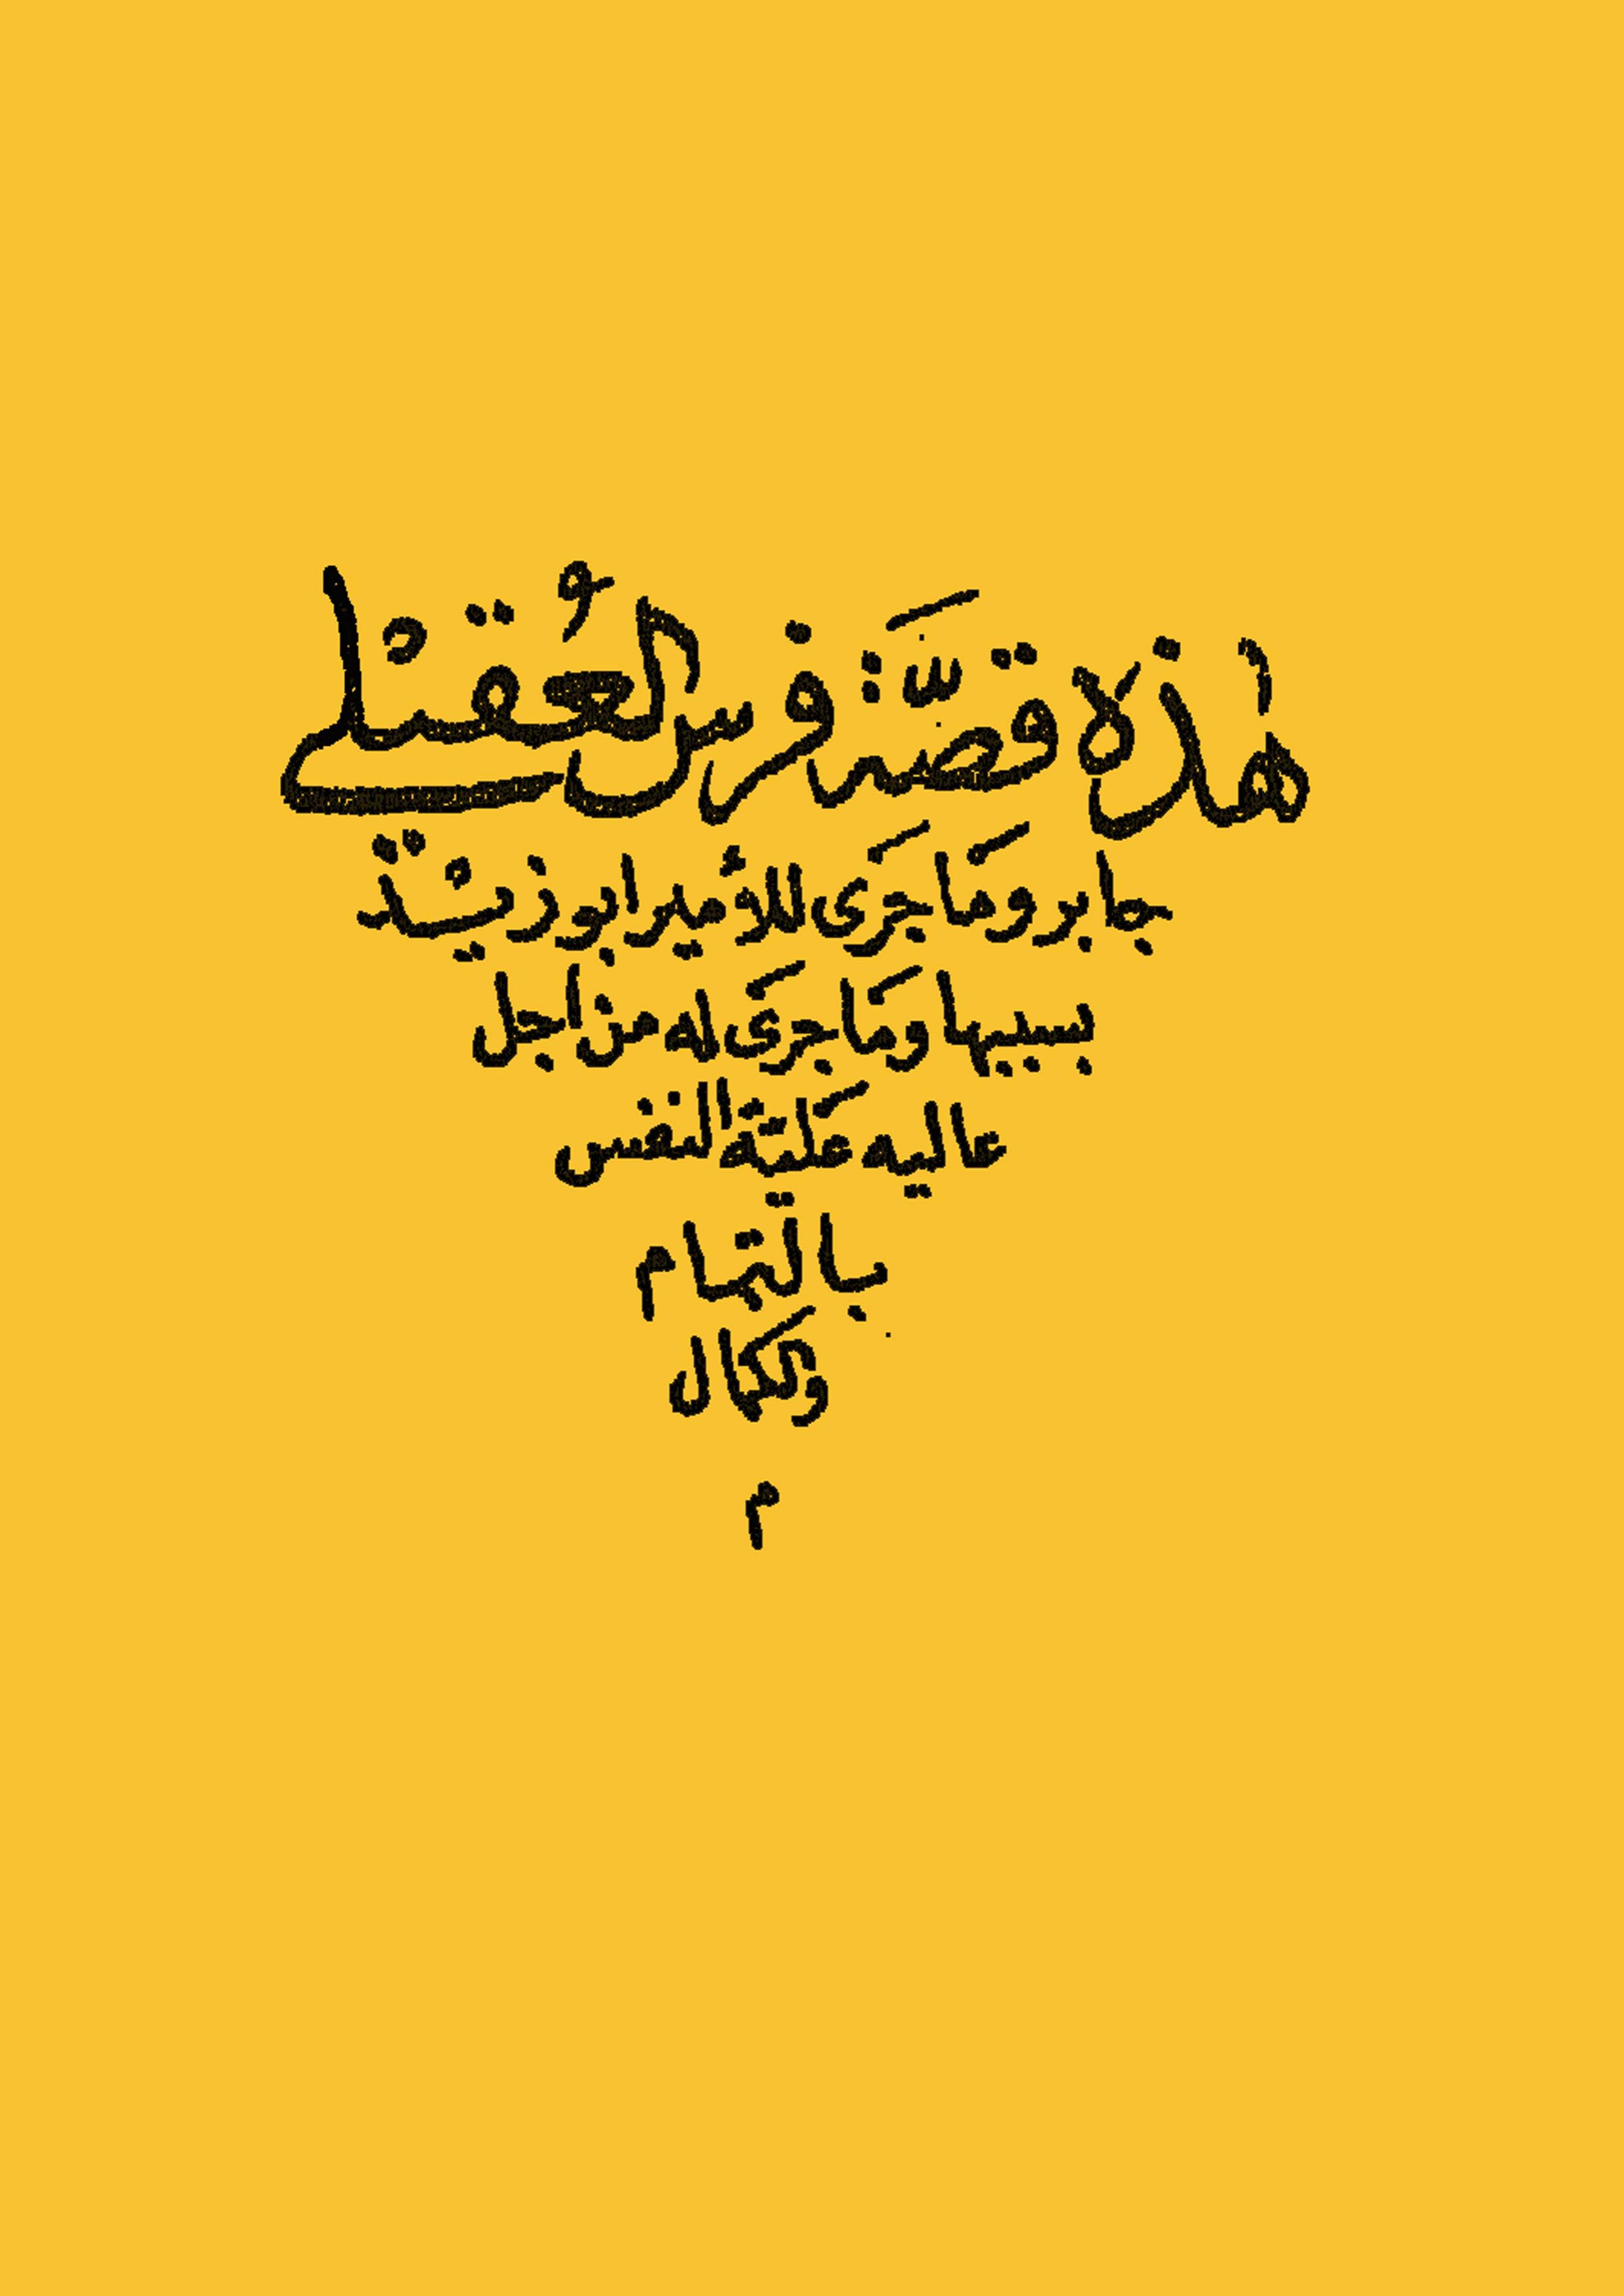 هٰذِه قصَّة فرس العُقيلي
جابر ومَا جَرَى للأمير ابو زيد
بسببها ومَا جرَى له من اجل
عاليه عَليّة النفس
بالتّمام
والكمال
م